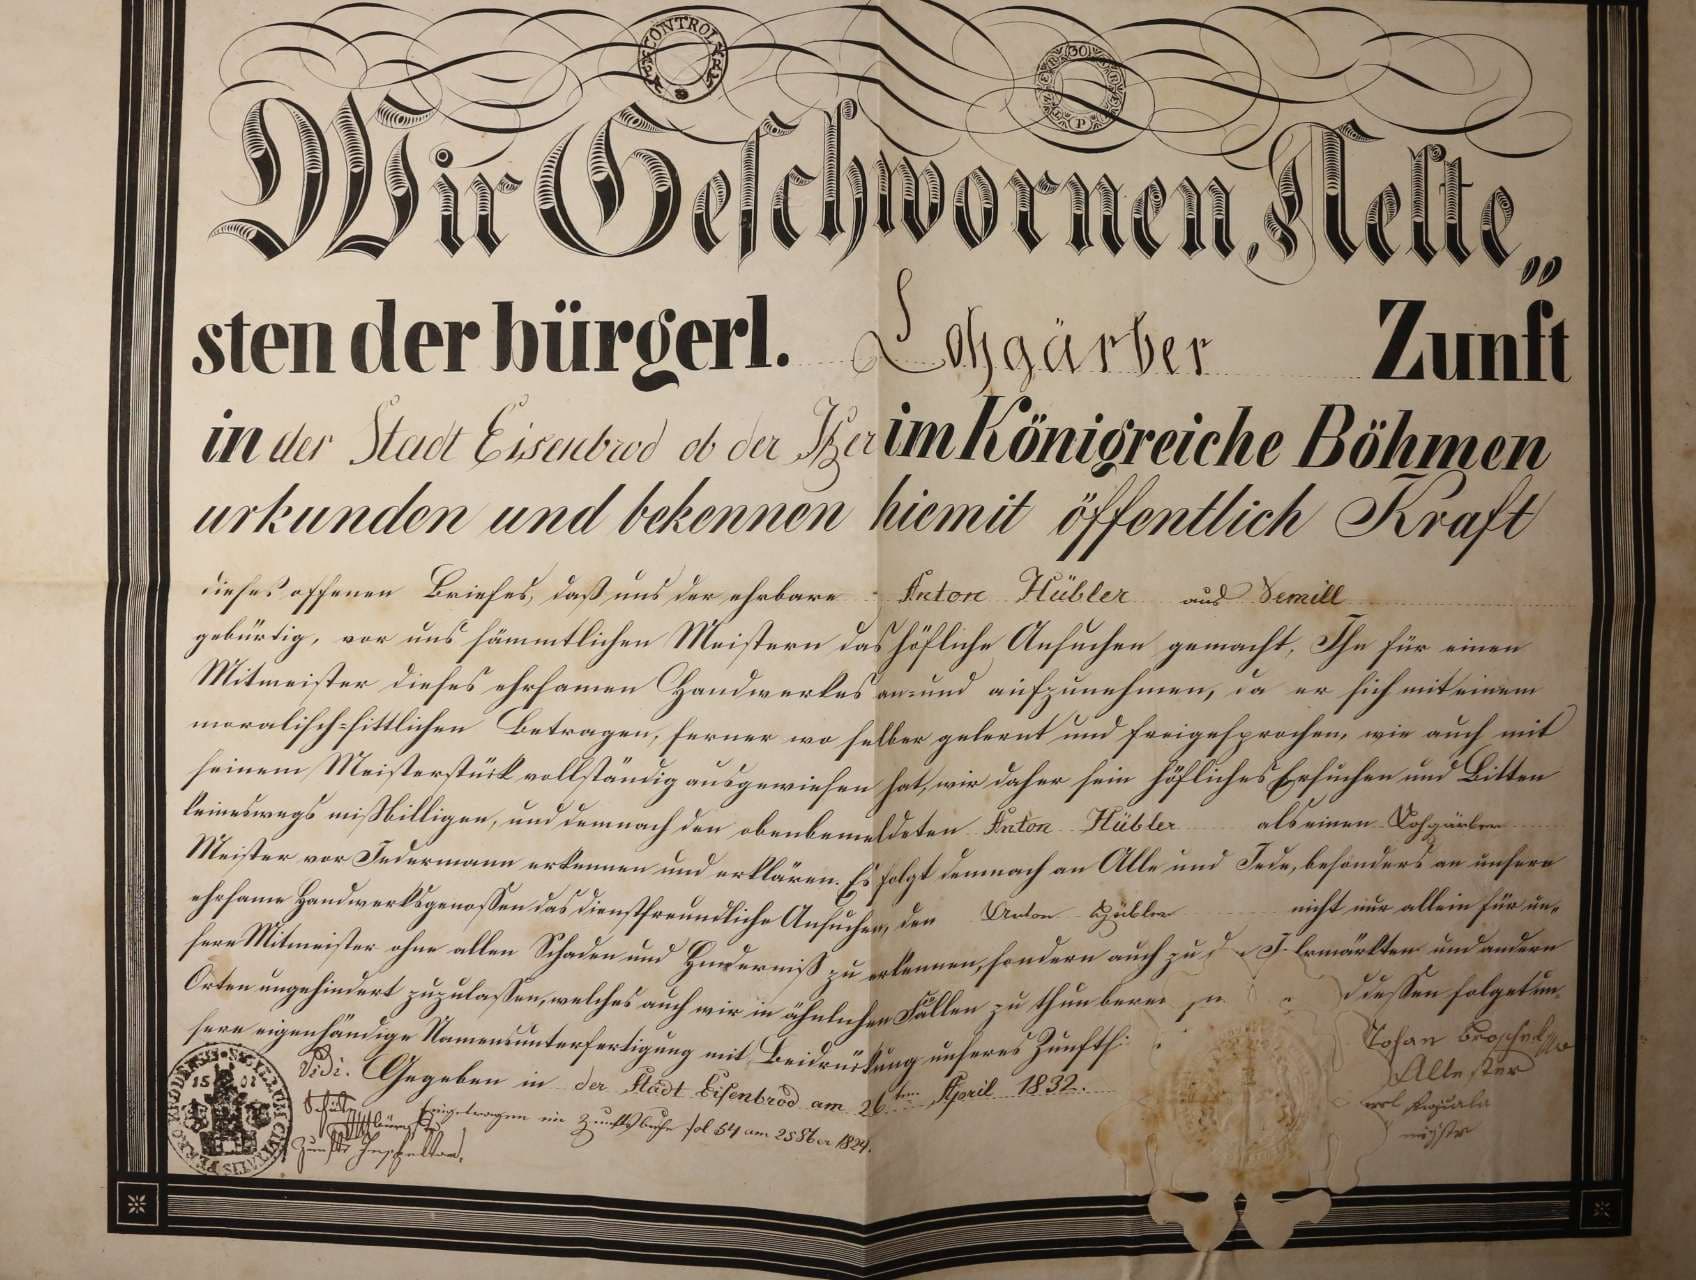 Wir Geschwornen Aelte„
sten der bürgerl. Lohgärber Zunft
in der Stadt Eisenbrod ob der Iser im Königreiche Böhmen
urkunden und bekennen hiemit öffentlich Kraft
dieses offenen Briefes, daß uns der ehrbare Anton Hübler aus Semill
gebürtig, vor uns sämmtlichen Meistern das höfliche Ansuchen gemacht, Ihn für einen
Mitmeister dieses ehrsamen Handwerkes an= und aufzunehmen, da er sich mit einem
moralisch=sittlichen Betragen, ferner wo selber gelernt und freigesprochen, wie auch mit
seinem Meisterstück vollständig ausgewiesen hat, wir daher sein höfliches Ersuchen und Bitten
keineswegs mißbilligen, und demnach den obenbemeldeten Anton Hübler als einen Lohgärber
Meister vor Jedermann erkennen und erklären. Es folgt demnach an Alle und Jede, besonders an unsere
ehrsame Handwerksgenossen das dienstfreundliche Ansuchen, den Anton Hübler nicht nur allein für un=
sere Mitmeister ohne allen Schaden und Hinderniß zu erkennen, sondern auch zu
und andern
Orten ungehindert zuzulassen, welches auch wir in ähnlichen Fällen zu thun
dessen folget un=
sere eigenhändige Namensunterfertigung mit Beidrückung unseres
Gegeben in der Stadt Eisenbrod am 26ten April 1832.
Vidi.
Eingetragen im Zunftsbuche fol 54 am
Zunfts Inspektor.
Johan
Ältester
CONTROL
30